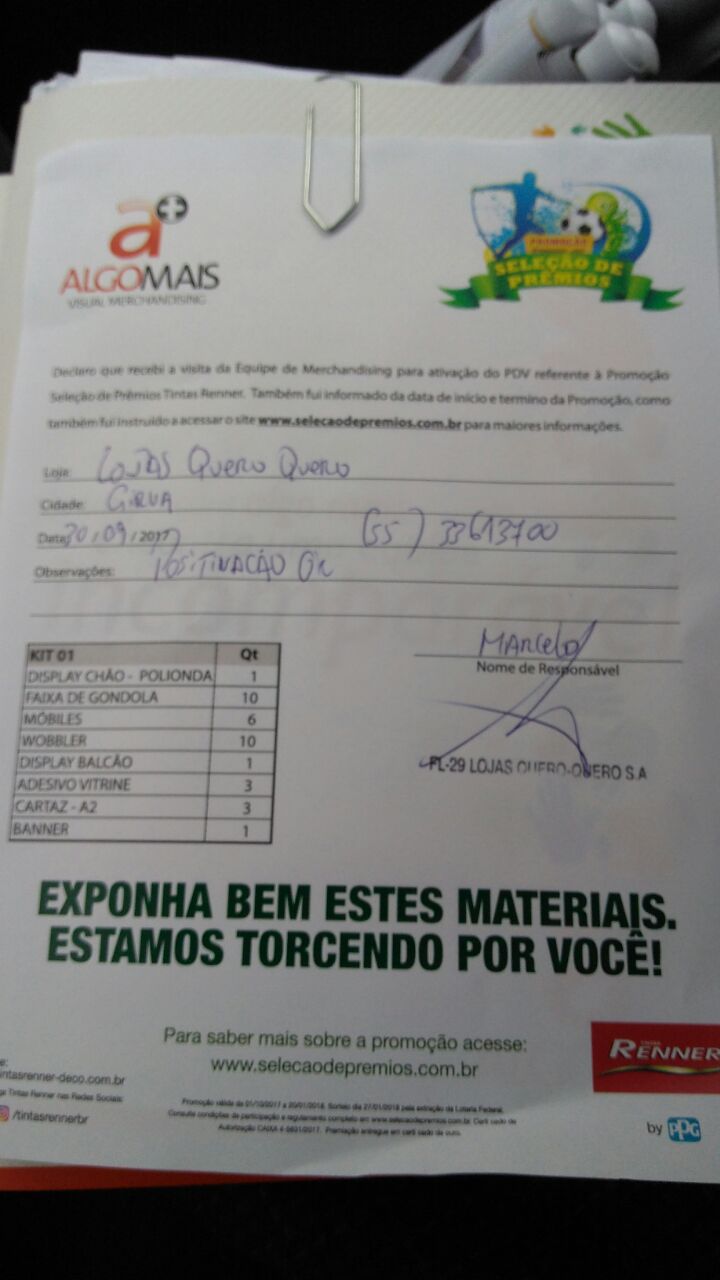 a+
ALGOMAIS
VISUAL MERCHANDISING
PROMOÇÃO
SELEÇÃO DE
PRÊMIOS
Declaro que recebi a visita da Equipe de Merchandising para ativação do PDV referente à Promoção
Seleção de Prêmios Tintas Renner. Também fui informado da data de início e termino da Promoção, como
também fui instruído a acessar o site www.selecaodepremios.com.br para maiores informações.
Loja: LOJAS QUERO QUERO
Cidade: GIRUA
Data: 30/09/2017 (55) 33613700
Observações: POSITIVAÇÃO OK
MARCELO
Nome de Responsável
FL-29 LOJAS QUERO-QUERO S.A
KIT 01 Qt
DISPLAY CHÃO - POLIONDA 1
FAIXA DE GONDOLA 10
MÓBILES 6
WOBBLER 10
DISPLAY BALCÃO 1
ADESIVO VITRINE 3
CARTAZ - A2 3
BANNER 1
EXPONHA BEM ESTES MATERIAIS.
ESTAMOS TORCENDO POR VOCÊ!
Para saber mais sobre a promoção acesse:
www.selecaodepremios.com.br
RENNER
by PPG
e:
intasrenner-deco.com.br
ga Tintas Renner nas Redes Sociais:
/tintasrennerbr
Promoção válida de 01/10/2017 a 20/01/2018. Sorteio dia 27/01/2018 pela extração da Loteria Federal.
Consulte condições de participação e regulamento completo em www.selecaodepremios.com.br. Certi cado de
Autorização CAIXA 4-0631/2017. Premiação entregue em certi cado de ouro.